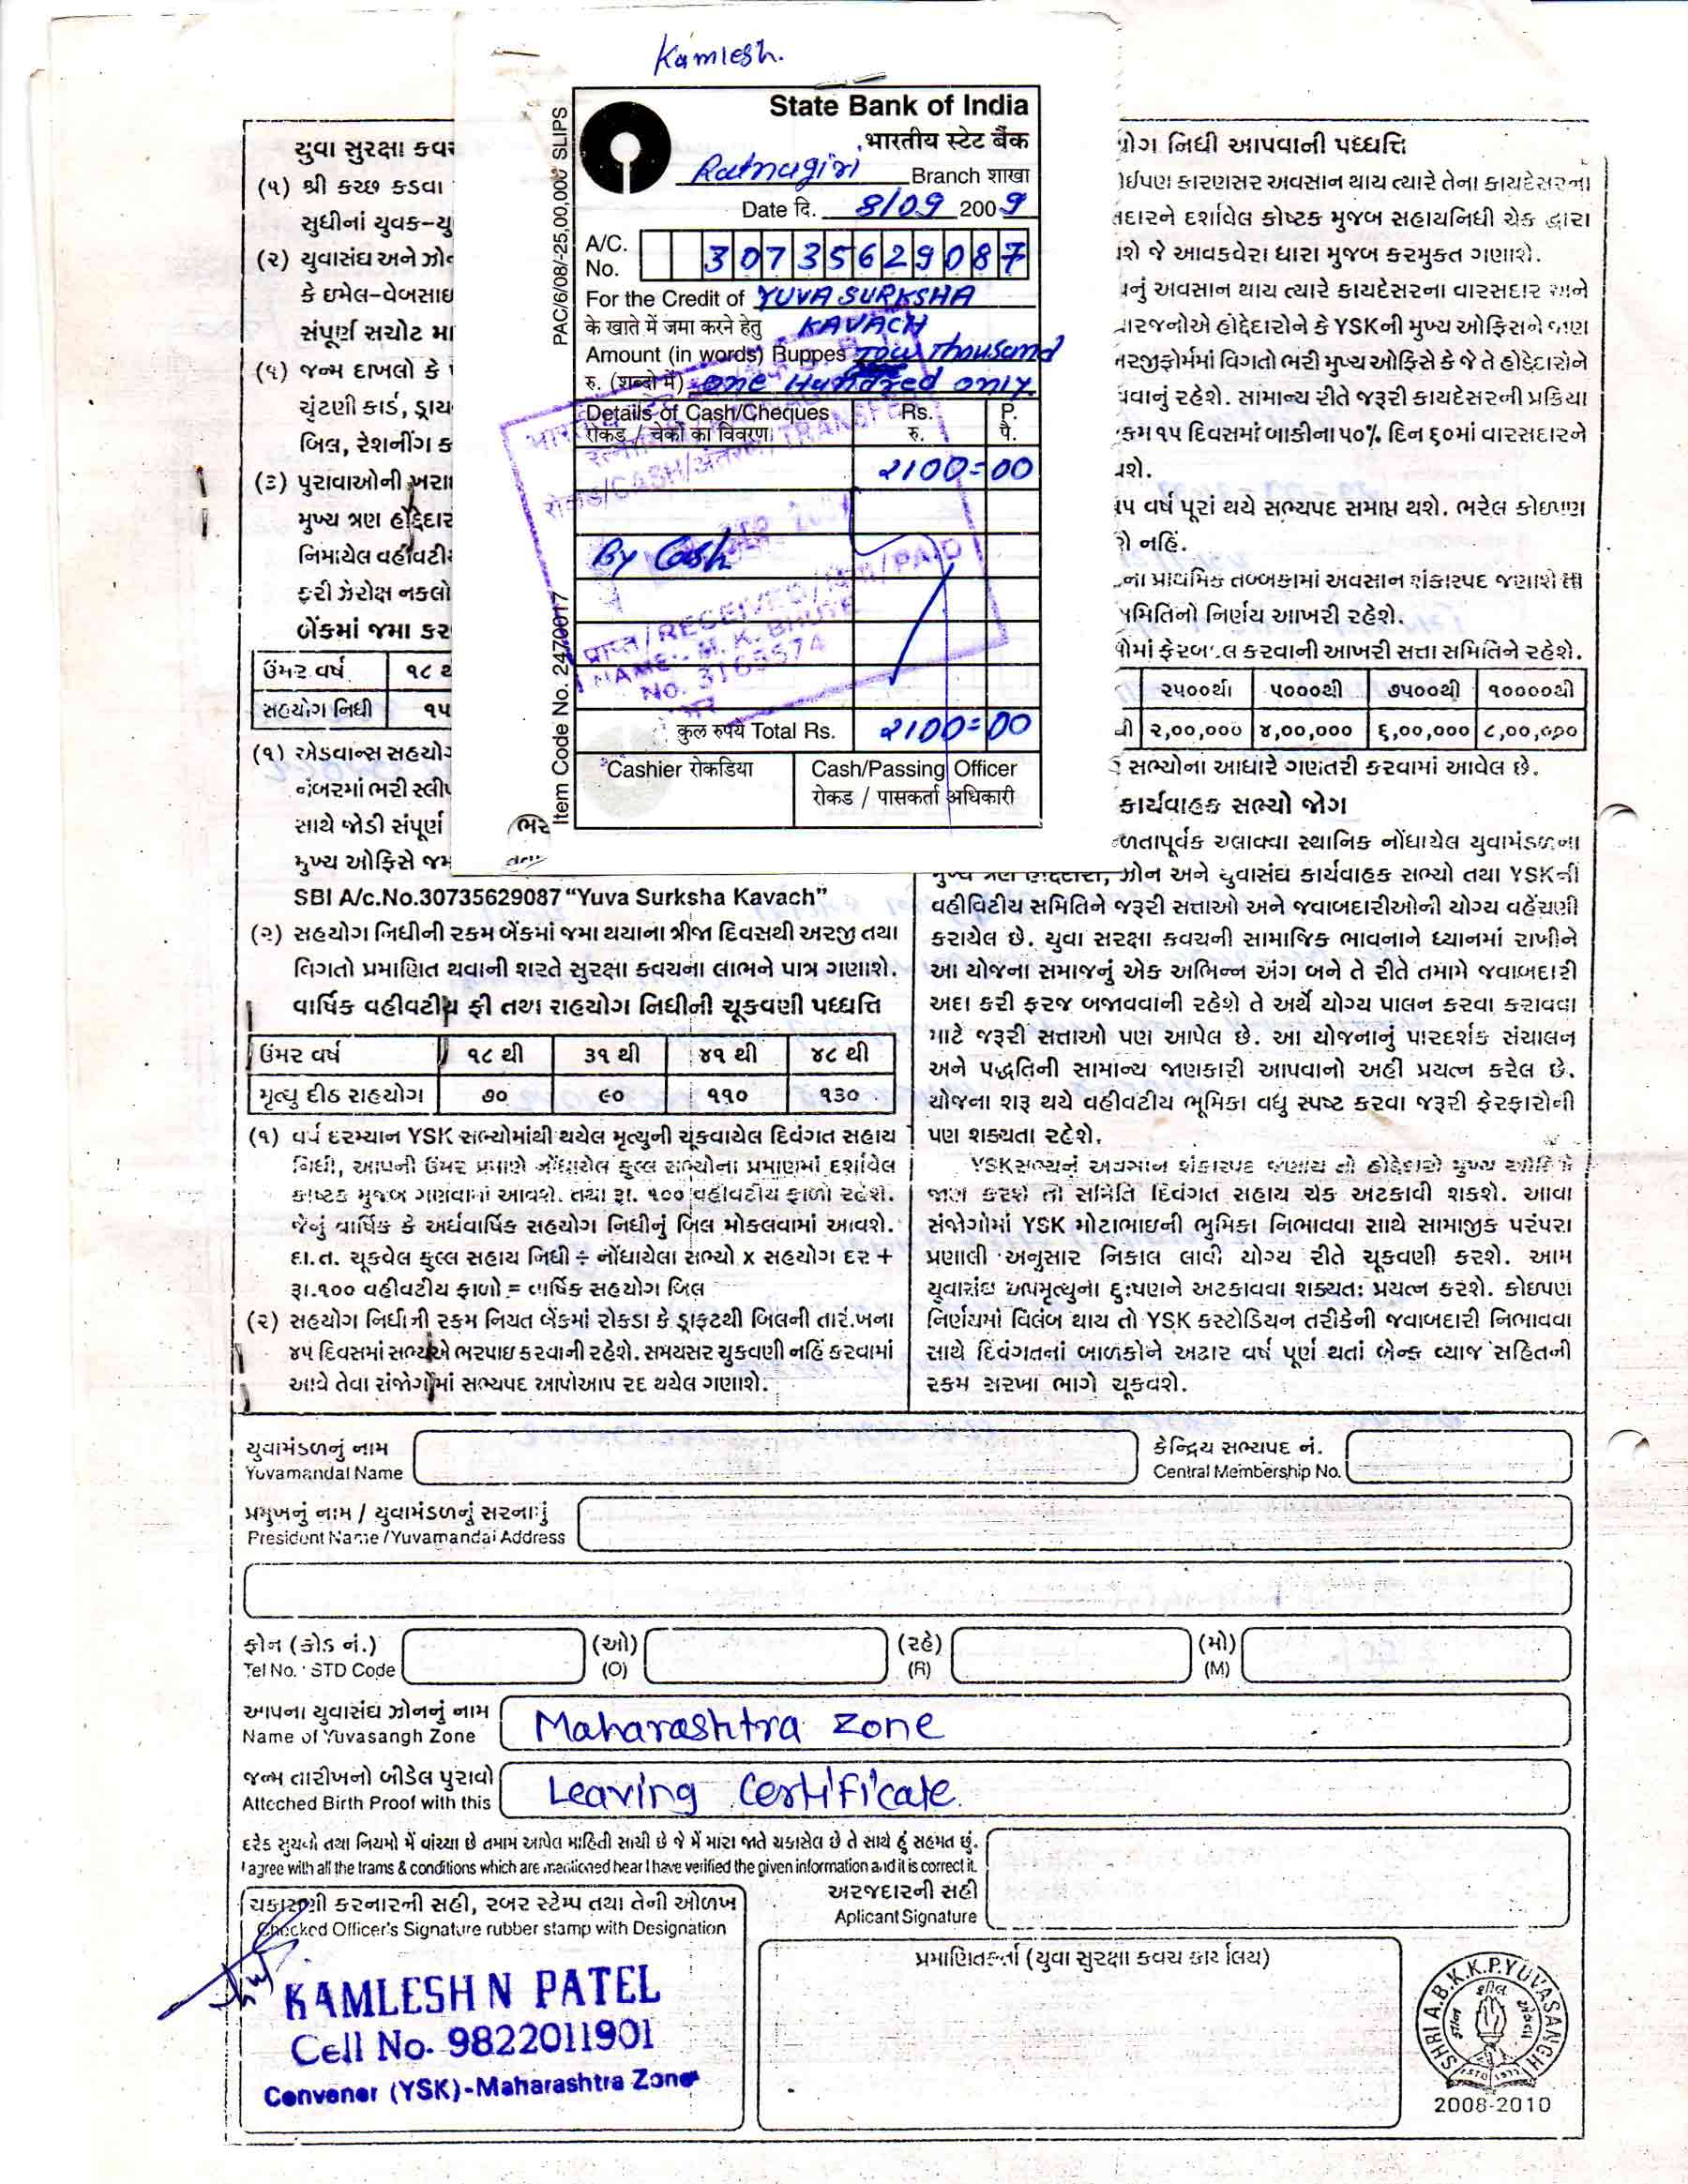 Kamlesh.
State Bank of India
भारतीय स्टेट बैंक
Ratnagiri Branch शाखा
Date दि. 8/09 2009
A/C. No. 30735629087
For the Credit of YUVA SURKSHA
के खाते में जमा करने हेतु KAVACH
Amount (in words) Ruppes Tow Thousand
रु. (शब्दो में) one Hundred only.
Details of Cash/Cheques Rs. P.
रोकड / चेकों का विवरण रु. पै.
2100=00
By Cash
कुल रुपये Total Rs. 2100=00
Cashier रोकडिया Cash/Passing Officer
रोकड / पासकर्ता अधिकारी
PAC/6/08/-25,00,000 SLIPS
Item Code No. 2470017
રોકડ/CASH/अंतरण/TRANSFER
प्राप्त/RECEIVED/PAID
NAME:- M. K. BHUTE
NO. 3165574
યુવા સુરક્ષા કવચ
(૧) શ્રી કચ્છ કડવા
સુધીનાં યુવક-યુ
(૨) યુવાસંઘ અને ઝોન
કે ઇમેલ-વેબસાઇ
સંપૂર્ણ સચોટ મા
(૧) જન્મ દાખલો કે
ચૂંટણી કાર્ડ, ડ્રાય
બિલ, રેશનીંગ ક
(૩) પુરાવાઓની ખરા
મુખ્ય ત્રણ હોદ્દેદાર
નિમાયેલ વહીવટી
ફરી ઝેરોક્ષ નકલો
બેંકમાં જમા કર
ઉંમર વર્ષ ૧૮ થ
સહયોગ નિધી ૧૫
(૧) એડવાન્સ સહયોગ
નંબરમાં ભરી સ્લીપ
સાથે જોડી સંપૂર્ણ ભર
મુખ્ય ઓફિસે જમ
SBI A/c.No.30735629087 "Yuva Surksha Kavach"
(૨) સહયોગ નિધીની રકમ બેંકમાં જમા થયાના ત્રીજા દિવસથી અરજી તથા
વિગતો પ્રમાણિત થવાની શરતે સુરક્ષા કવચના લાભને પાત્ર ગણાશે.
વાર્ષિક વહીવટીય ફી તથા સહયોગ નિધીની ચૂકવણી પધ્ધત્તિ
ઉંમર વર્ષ ૧૮ થી ૩૧ થી ૪૧ થી ૪૮ થી
મૃત્યુ દીઠ સહયોગ ૭૦ ૯૦ ૧૧૦ ૧૩૦
(૧) વર્ષ દરમ્યાન YSK સભ્યોમાંથી થયેલ મૃત્યુની ચૂકવાયેલ દિવંગત સહાય
નિધી, આપની ઉંમર પ્રમાણે નોંધાયેલ કુલ્લ સભ્યોના પ્રમાણમાં દર્શાવેલ
કોષ્ટક મુજબ ગણવામાં આવશે. તથા રૂા. ૧૦૦ વહીવટીય ફાળો રહેશે.
જેનું વાર્ષિક કે અર્ધવાર્ષિક સહયોગ નિધીનું બિલ મોકલવામાં આવશે.
દા.ત. ચૂકવેલ કુલ્લ સહાય નિધી ÷ નોંધાયેલા સભ્યો x સહયોગ દર +
રૂા.૧૦૦ વહીવટીય ફાળો = વાર્ષિક સહયોગ બિલ
(૨) સહયોગ નિધીની રકમ નિયત બેંકમાં રોકડા કે ડ્રાફટથી બિલની તારીખના
૪૫ દિવસમાં સભ્યએ ભરપાઇ કરવાની રહેશે. સમયસર ચુકવણી નહિં કરવામાં
આવે તેવા સંજોગોમાં સભ્યપદ આપોઆપ રદ થયેલ ગણાશે.
યોગ નિધી આપવાની પધ્ધત્તિ
ઈપણ કારણસર અવસાન થાય ત્યારે તેના કાયદેસરના
દારને દર્શાવેલ કોષ્ટક મુજબ સહાયનિધી ચેક દ્વારા
શે જે આવકવેરા ધારા મુજબ કરમુક્ત ગણાશે.
નું અવસાન થાય ત્યારે કાયદેસરના વારસદાર અને
રજનોએ હોદ્દેદારોને કે YSKની મુખ્ય ઓફિસને જાણ
રજીફોર્મમાં વિગતો ભરી મુખ્ય ઓફિસે કે જે તે હોદ્દેદારોને
વવાનું રહેશે. સામાન્ય રીતે જરૂરી કાયદેસરની પ્રક્રિયા
કમ ૧૫ દિવસમાં બાકીના ૫૦% દિન ૬૦માં વારસદારને
શે.
૫ વર્ષ પૂરાં થયે સભ્યપદ સમાપ્ત થશે. ભરેલ કોઇપણ
નહિં.
ના પ્રાથમિક તબ્બકામાં અવસાન શંકાસ્પદ જણાશે તો
મિતિનો નિર્ણય આખરી રહેશે.
માં ફેરબદલ કરવાની આખરી સત્તા સમિતિને રહેશે.
૨૫૦૦થી ૫૦૦૦થી ૭૫૦૦થી ૧૦૦૦૦થી
૨,૦૦,૦૦૦ ૪,૦૦,૦૦૦ ૬,૦૦,૦૦૦ ૮,૦૦,૦૦૦
સભ્યોના આધારે ગણતરી કરવામાં આવેલ છે.
કાર્યવાહક સભ્યો જોગ
ળતાપૂર્વક ચલાવવા સ્થાનિક નોંધાયેલ યુવામંડળના
મુખ્ય ત્રણ હોદ્દેદારો, ઝોન અને યુવાસંઘ કાર્યવાહક સભ્યો તથા YSKની
વહીવિટીય સમિતિને જરૂરી સત્તાઓ અને જવાબદારીઓની યોગ્ય વહેંચણી
કરાયેલ છે. યુવા સુરક્ષા કવચની સામાજિક ભાવનાને ધ્યાનમાં રાખીને
આ યોજના સમાજનું એક અભિન્ન અંગ બને તે રીતે તમામે જવાબદારી
અદા કરી ફરજ બજાવવાની રહેશે તે અર્થે યોગ્ય પાલન કરવા કરાવવા
માટે જરૂરી સત્તાઓ પણ આપેલ છે. આ યોજનાનું પારદર્શક સંચાલન
અને પદ્ધતિની સામાન્ય જાણકારી આપવાનો અહીં પ્રયત્ન કરેલ છે.
યોજના શરૂ થયે વહીવટીય ભૂમિકા વધુ સ્પષ્ટ કરવા જરૂરી ફેરફારોની
પણ શક્યતા રહેશે.
YSKસભ્યનું અવસાન શંકાસ્પદ જણાય તો હોદ્દેદારો મુખ્ય ઓફિસે
જાણ કરશે તો સમિતિ દિવંગત સહાય ચેક અટકાવી શકશે. આવા
સંજોગોમાં YSK મોટાભાઇની ભુમિકા નિભાવવા સાથે સામાજીક પરંપરા
પ્રણાલી અનુસાર નિકાલ લાવી યોગ્ય રીતે ચૂકવણી કરશે. આમ
યુવાસંઘ અપમૃત્યુના દુઃષણને અટકાવવા શક્યતઃ પ્રયત્ન કરશે. કોઇપણ
નિર્ણયમાં વિલંબ થાય તો YSK કસ્ટોડિયન તરીકેની જવાબદારી નિભાવવા
સાથે દિવંગતનાં બાળકોને અઢાર વર્ષ પૂર્ણ થતાં બેન્ક વ્યાજ સહિતની
રકમ સરખા ભાગે ચૂકવશે.
યુવામંડળનું નામ
Yuvamandal Name
કેન્દ્રિય સભ્યપદ નં.
Central Membership No.
પ્રમુખનું નામ / યુવામંડળનું સરનામું
President Name /Yuvamandal Address
ફોન (કોડ નં.) (ઓ) (રહે) (મો)
Tel No. : STD Code (O) (R) (M)
આપના યુવાસંઘ ઝોનનું નામ
Name of Yuvasangh Zone Maharashtra Zone
જન્મ તારીખનો બીડેલ પુરાવો
Atteched Birth Proof with this Leaving Certificate.
દરેક સુચનો તથા નિયમો મેં વાંચ્યા છે તમામ આપેલ માહિતી સાચી છે જે મેં મારા જાતે ચકાસેલ છે તે સાથે હું સહમત છું.
I agree with all the trams & conditions which are mentioned hear I have verified the given information and it is correct it.
અરજદારની સહી
Aplicant Signature
ચકાસણી કરનારની સહી, રબર સ્ટેમ્પ તથા તેની ઓળખ
Checked Officer's Signature rubber stamp with Designation
KAMLESH N PATEL
Cell No. 9822011901
Convener (YSK)-Maharashtra Zone
પ્રમાણિતકર્તા (યુવા સુરક્ષા કવચ કાર્યાલય)
SHRI A.B.K.K.P. YUVASANGH
2008-2010